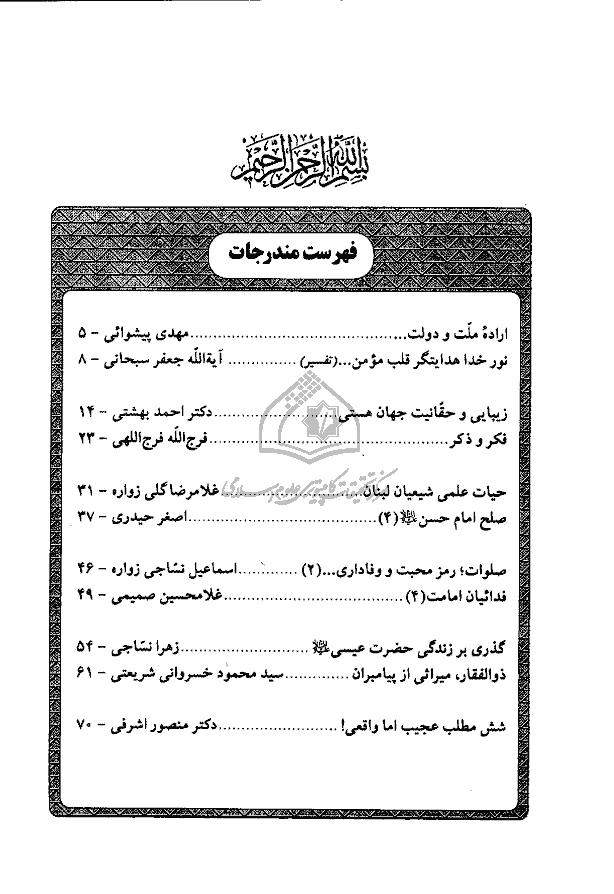 بسم الله الرحمن الرحیم
فهرست مندرجات
ارادهٔ ملّت و دولت...............................................مهدی پیشوائی - ۵
نور خدا هدایتگر قلب مؤمن...(تفسیر) ................ آیةاللّه جعفر سبحانی - ۸
زیبایی و حقّانیت جهان هستی............................دکتر احمد بهشتی - ۱۴
فکر و ذکر.....................................................فرج‌اللّه فرج‌اللهی - ۲۳
مرکز تحقیقات کامپیوتری علوم اسلامی
حیات علمی شیعیان لبنان................................غلامرضا گلی زواره - ۳۱
صلح امام حسن﷼(۴)...........................................اصغر حیدری - ۳۷
صلوات؛ رمز محبت و وفاداری...(۲) .............اسماعیل نسّاجی زواره - ۴۶
فدائیان امامت(۴)..........................................غلامحسین صمیمی - ۴۹
گذری بر زندگی حضرت عیسی...............................زهرا نسّاجی - ۵۴
ذوالفقار، میراثی از پیامبران ...............سید محمود خسروانی شریعتی - ۶۱
شش مطلب عجیب اما واقعی! ............................دکتر منصور اشرفی - ۷۰